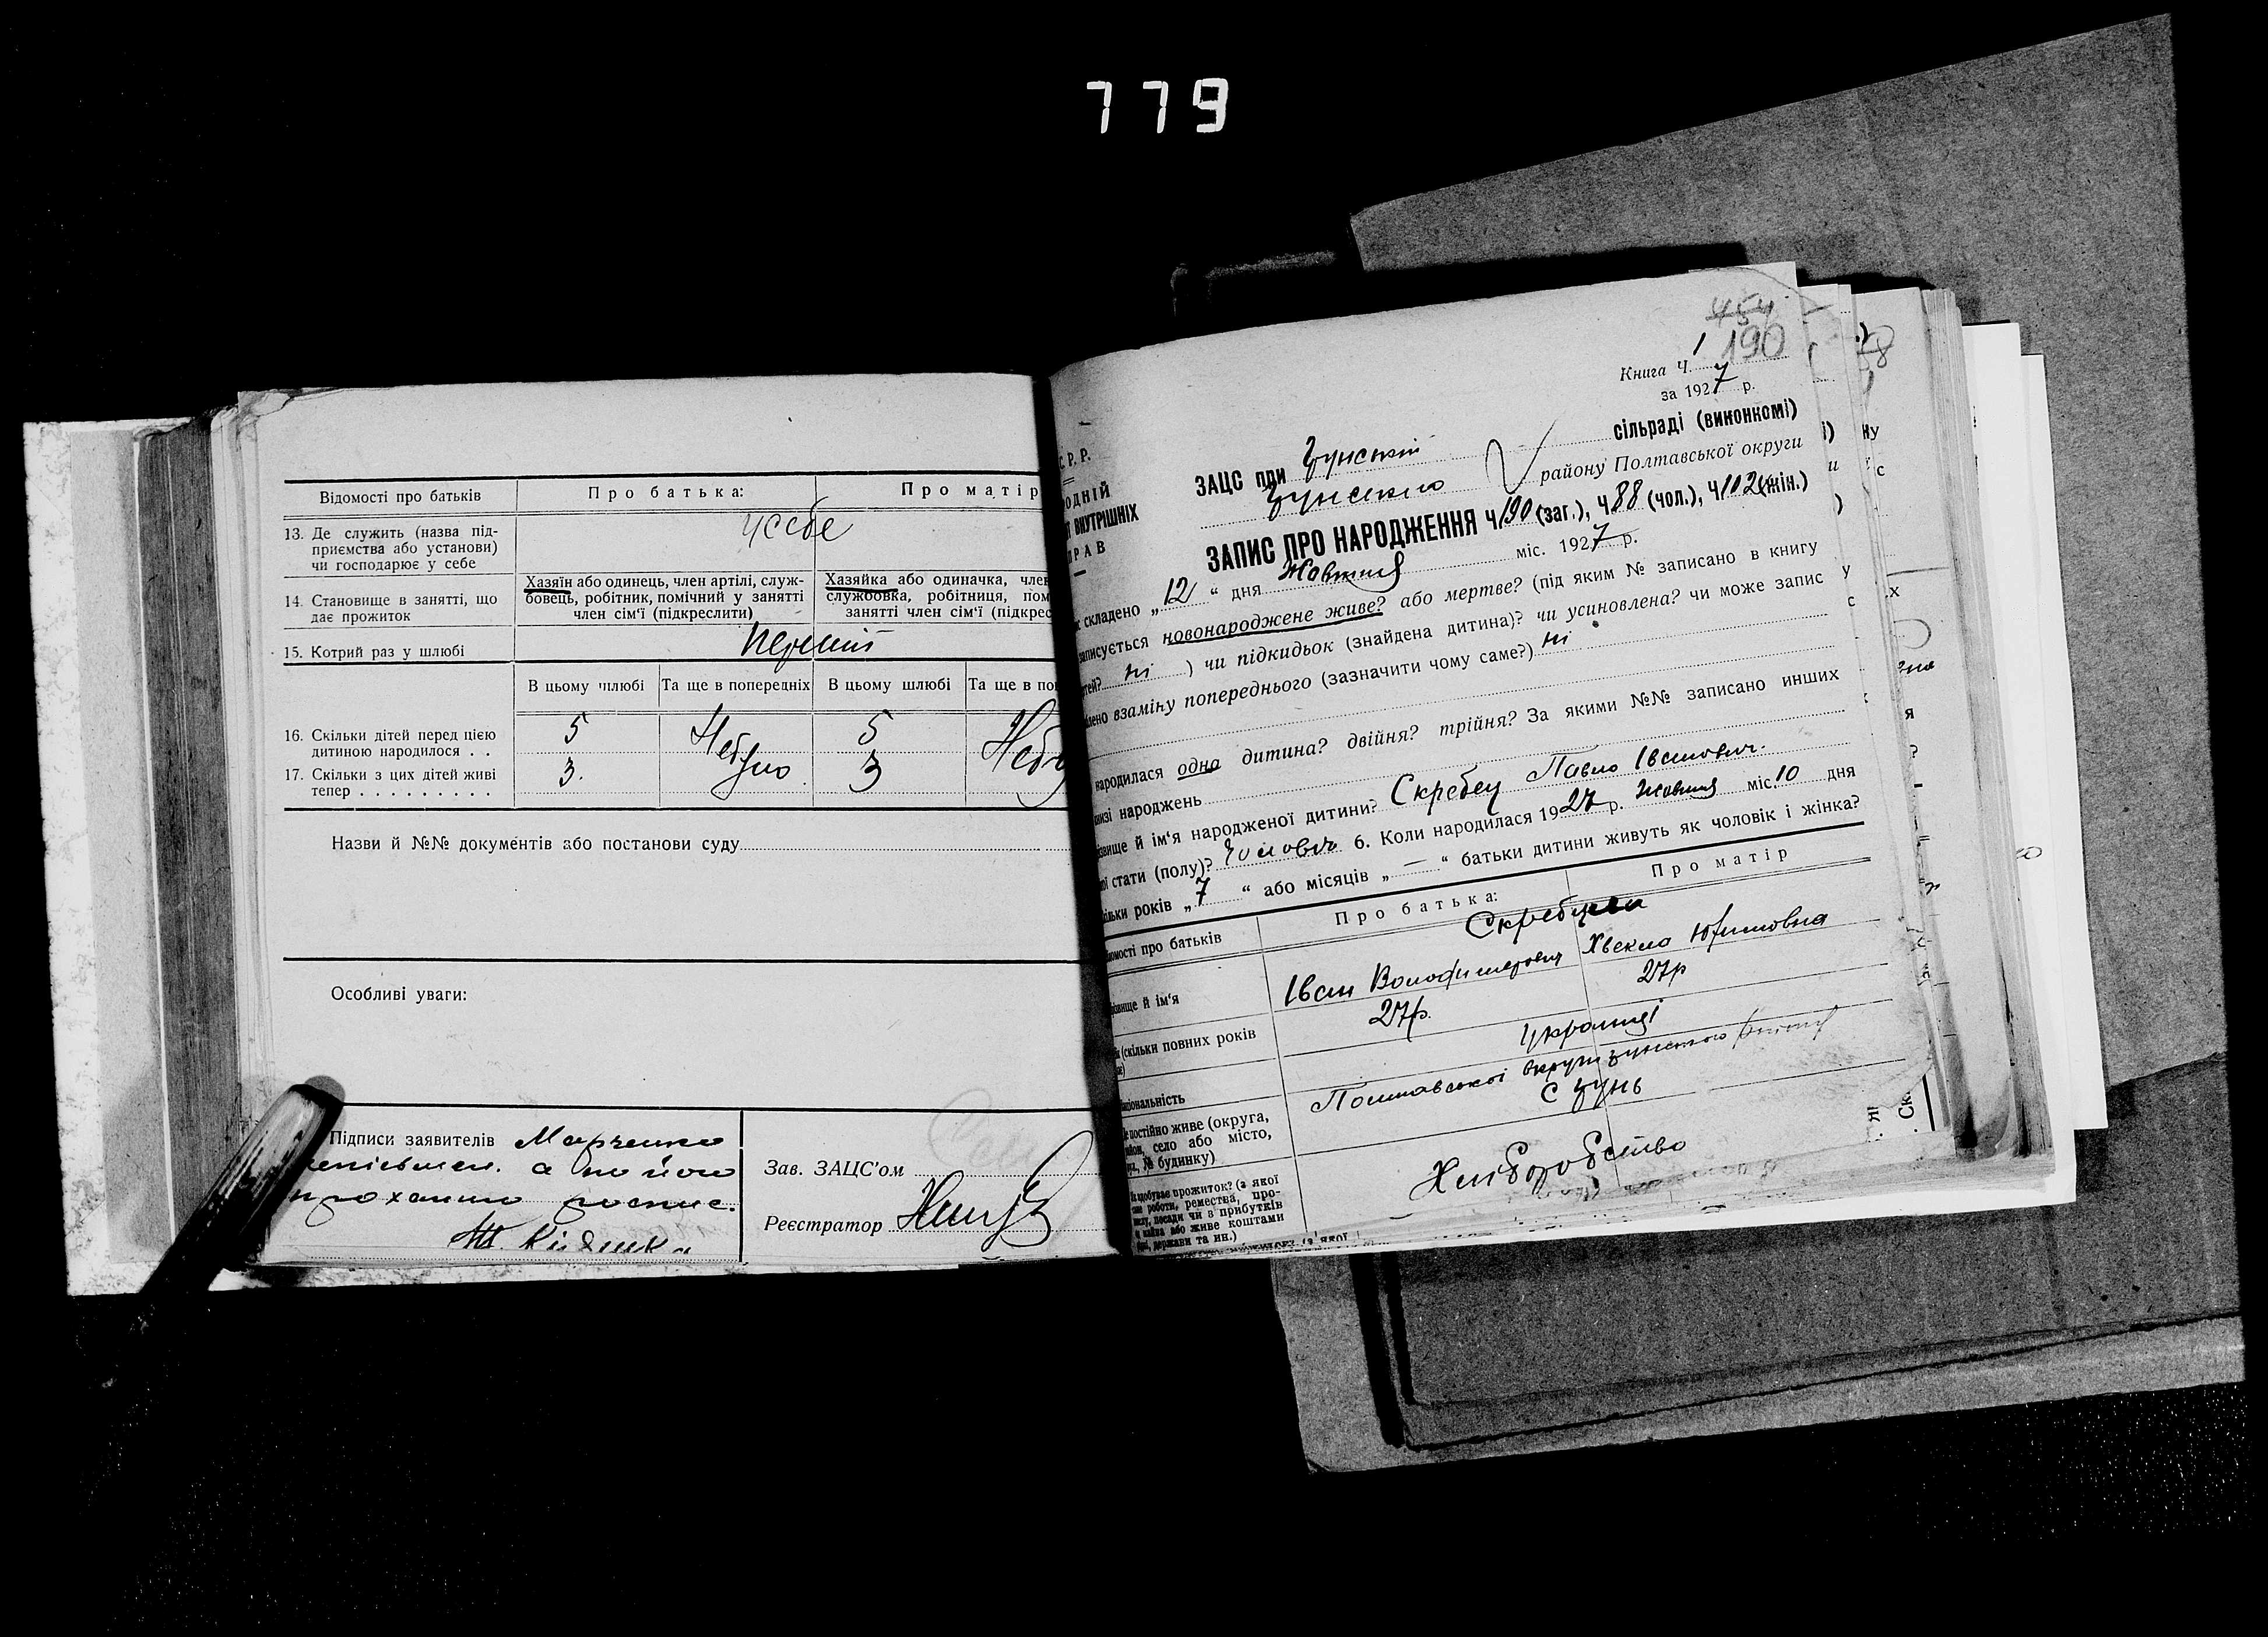 779
Відомості про батьків
Про батька:
Про матір
13. Де служить (назва під-
приємства або установи)
чи господарює у себе
у себе
14. Становище в занятті, що
дає прожиток
Хазяїн або одинець, член артілі, служ-
бовець, робітник, помічний у занятті
член сім'ї (підкреслити)
Хазяйка або одиначка, член
службовка, робітниця, пом
занятті член сім'ї (підкрес
15. Котрий раз у шлюбі
перший
В цьому шлюбі
Та ще в попередніх
В цьому шлюбі
Та ще в по
16. Скільки дітей перед цією
дитиною народилося . .
5
Небуло
5
Небу
17. Скільки з цих дітей живі
тепер . . . . . . . . .
3.
3
Назви й №№ документів або постанови суду
Особливі уваги:
Підписи заявителів Марченко
а по його
проханню роспис.
Зав. ЗАЦС'ом
Реєстратор
454
190
Книга Ч. 1
за 1927 р.
С. Р. Р.
ОДНІЙ
ВНУТРІШНІХ
ПРАВ
ЗАЦС при
сільраді (виконкомі)
району Полтавської округи
ЗАПИС ПРО НАРОДЖЕННЯ Ч 190 (заг.), Ч 88 (чол.), Ч 102 (жін.)
складено „12“ дня Жовтня міс. 1927 р.
записується новонароджене живе? або мертве? (під яким № записано в книгу
ні ) чи підкидьок (знайдена дитина)? чи усиновлена? чи може запис
взаміну попереднього (зазначити чому саме?) ні
народилася одна дитина? двійня? трійня? За якими №№ записано инших
народжень
й ім'я народженої дитини? Скребец Павло Іванович.
стати (полу)? Чоловіч. 6. Коли народилася 1927 р. Жовтня міс. 10 дня
років „7“ або місяців „—“ батьки дитини живуть як чоловік і жінка?
про батьків
Про батька:
Про матір
й ім'я
Іван Володимирович
Хвекла Юхимовна
(скільки повних років
27р.
27р
українці
Де постійно живе (округа,
село або місто,
№ будинку)
Полтавської округи
прожиток? (з якої
роботи, ремества, про-
посади чи з прибутків
або живе коштами
держави та ин.)
Хліборобство